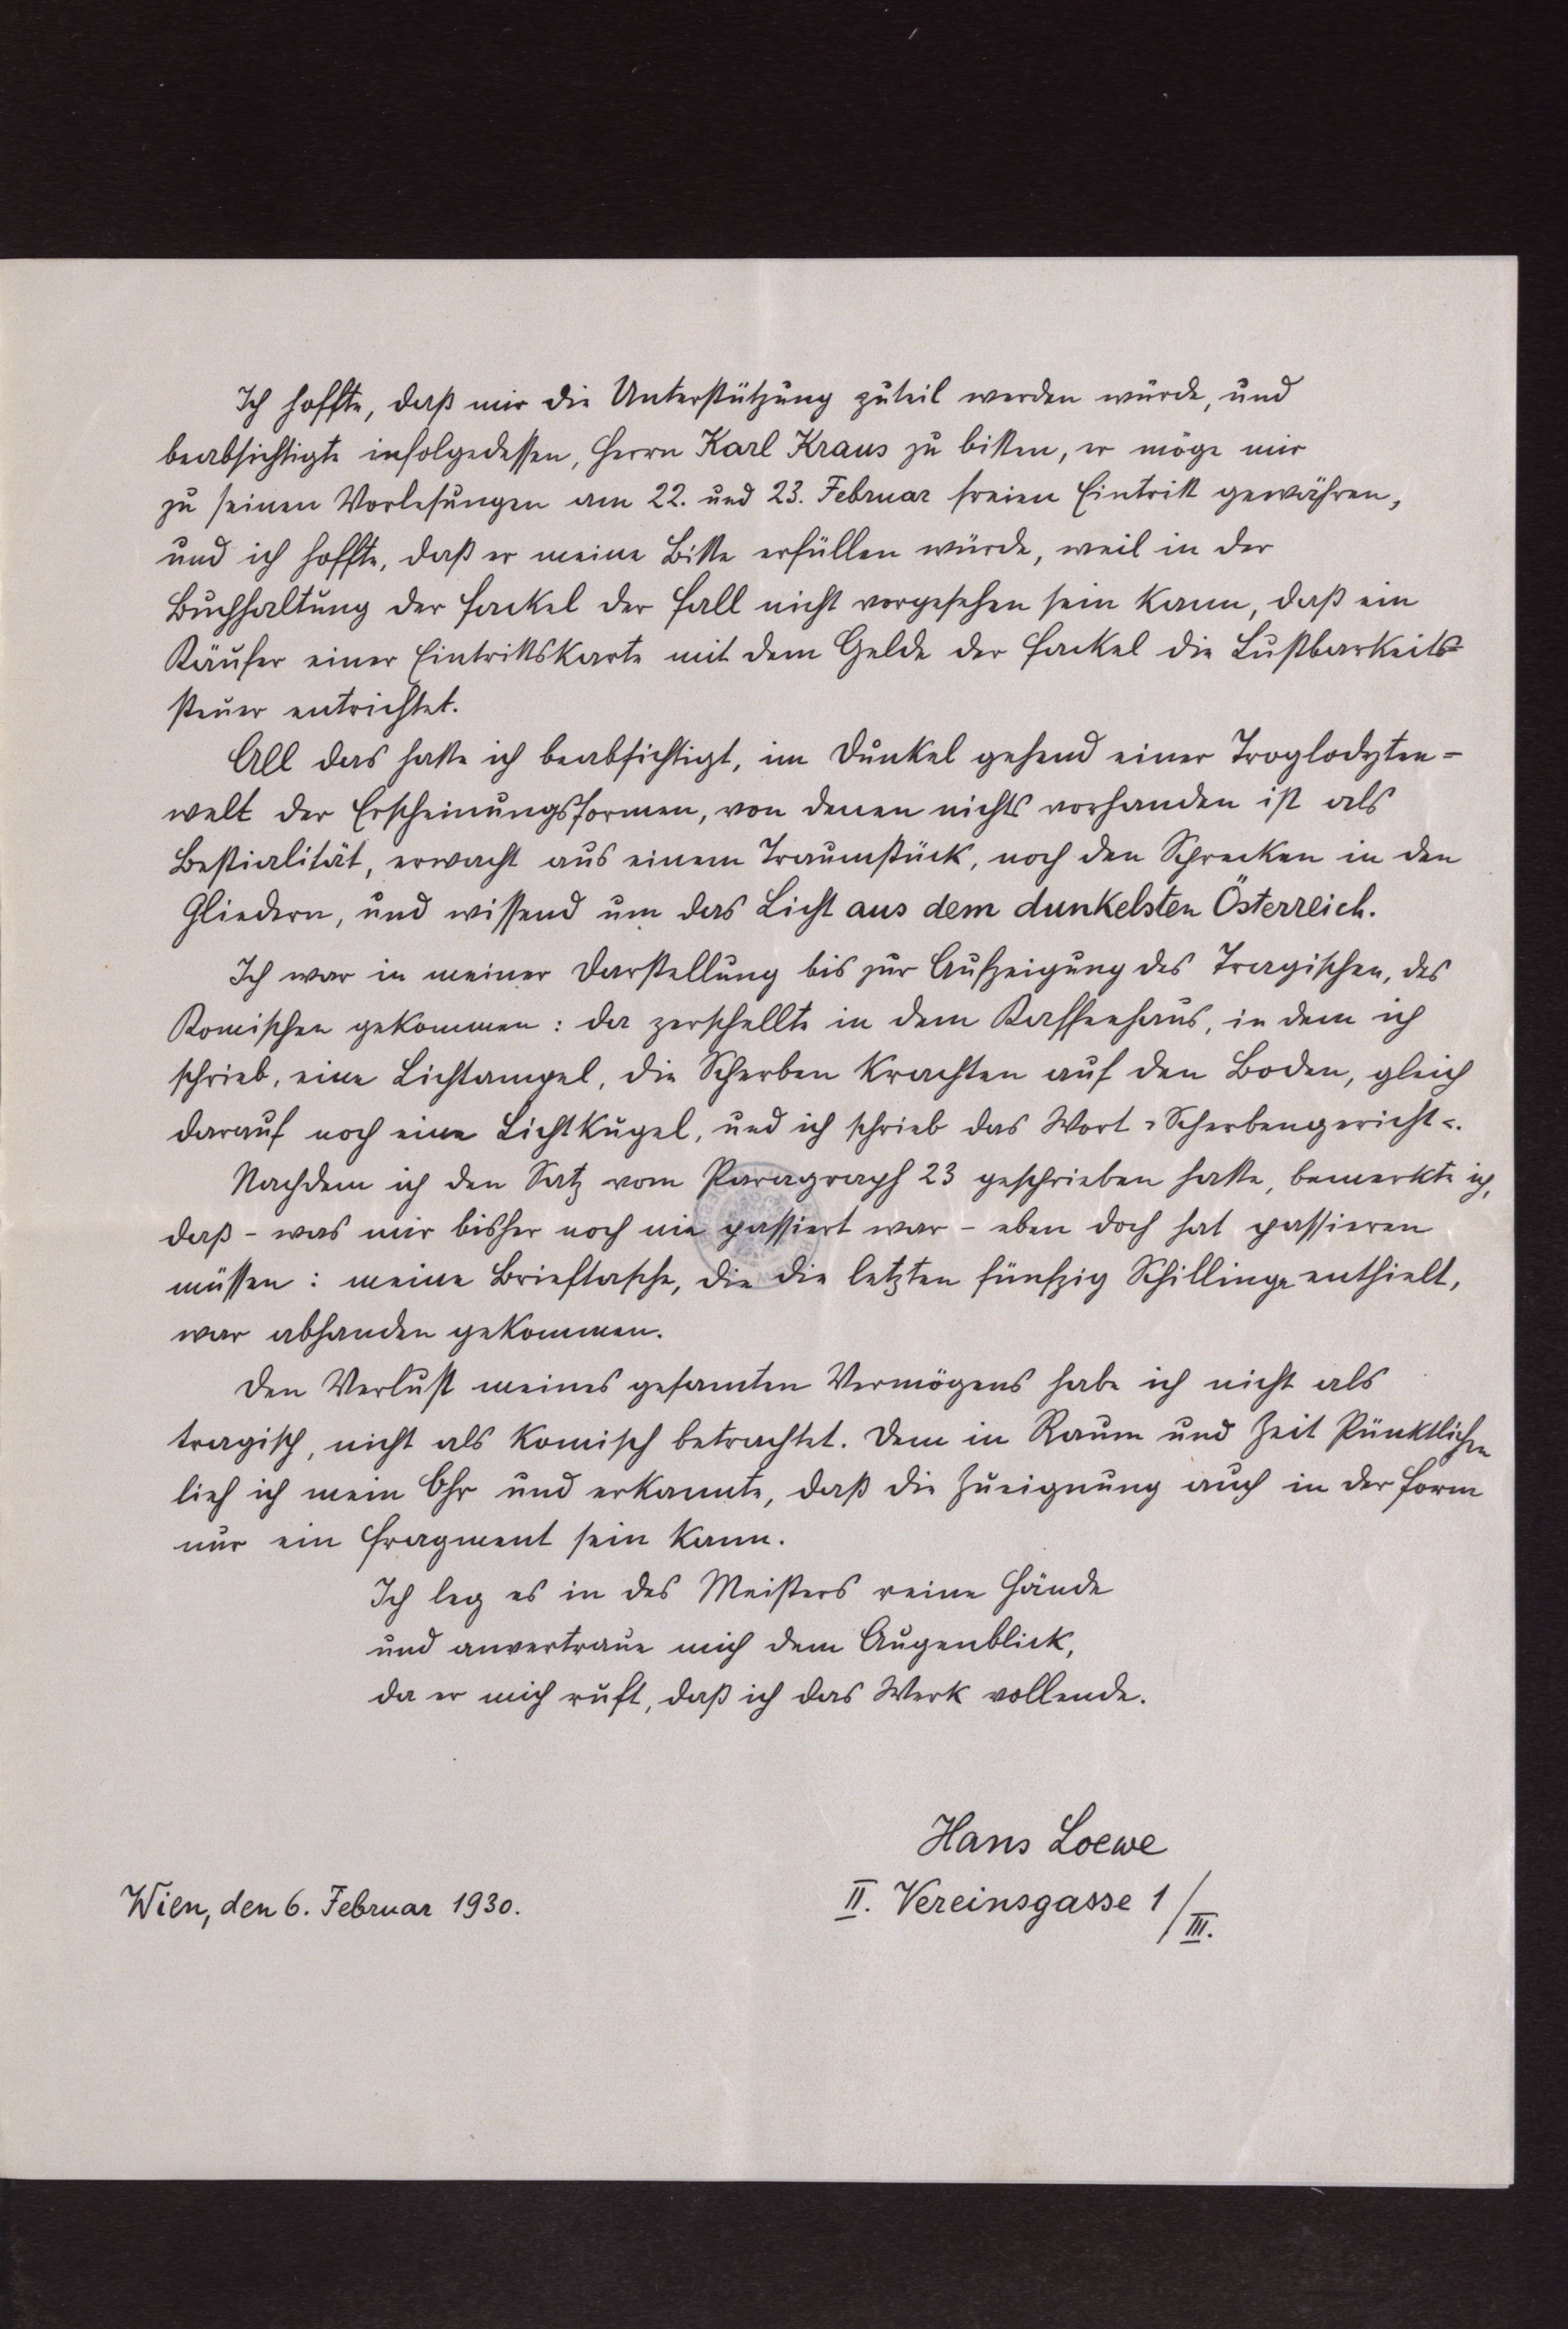 Ich hoffte, daß mir die Unterstützung zuteil werden würde, und
beabsichtigte infolgedessen, Herrn Karl Kraus zu bitten, er möge mir
zu seinen Vorlesungen am 22. und 23. Februar freien Eintritt gewähren,
und ich hoffte, daß er meine Bitte erfüllen würde, weil in der
Buchhaltung der Fackel der Fall nicht vorgesehen sein kann, daß ein
Käufer einer Eintrittskarte mit dem Gelde der Fackel die Lustbarkeits=
steuer entrichtet.
All das hatte ich beabsichtigt, im Dunkel gehend einer Troglodyten=
welt der Erscheinungsformen, von denen nichts vorhanden ist als
Bestialität, erwacht aus einem Traumstück, noch den Schrecken in den
Gliedern, und wissend um das Licht aus dem dunkelsten Österreich.
Ich war in meiner Darstellung bis zur Aufzeigung des Tragischen, des
Komischen gekommen: da zerschellte in dem Kaffeehaus, in dem ich
schrieb, eine Lichtampel, die Scherben krachten auf den Boden, gleich
darauf noch eine Lichtkugel, und ich schrieb das Wort »Scherbengericht«.
Nachdem ich den Satz vom Paragraph 23 geschrieben hatte, bemerkte ich,
daß - was mir bisher noch nie passiert war - eben doch hat passieren
müssen: meine Brieftasche, die die letzten fünfzig Schillinge enthielt,
war abhanden gekommen.
Den Verlust meines gesamten Vermögens habe ich nicht als
tragisch, nicht als komisch betrachtet. Dem in Raum und Zeit Pünktlichen
lieh ich mein Ohr und erkannte, daß die Zueignung auch in der Form
nur ein Fragment sein kann.
Ich leg es in des Meisters reine Hände
und anvertraue mich dem Augenblick,
da er mich ruft, daß ich das Werk vollende.
Hans Loewe
Wien, den 6. Februar 1930.
II. Vereinsgasse 1/III.